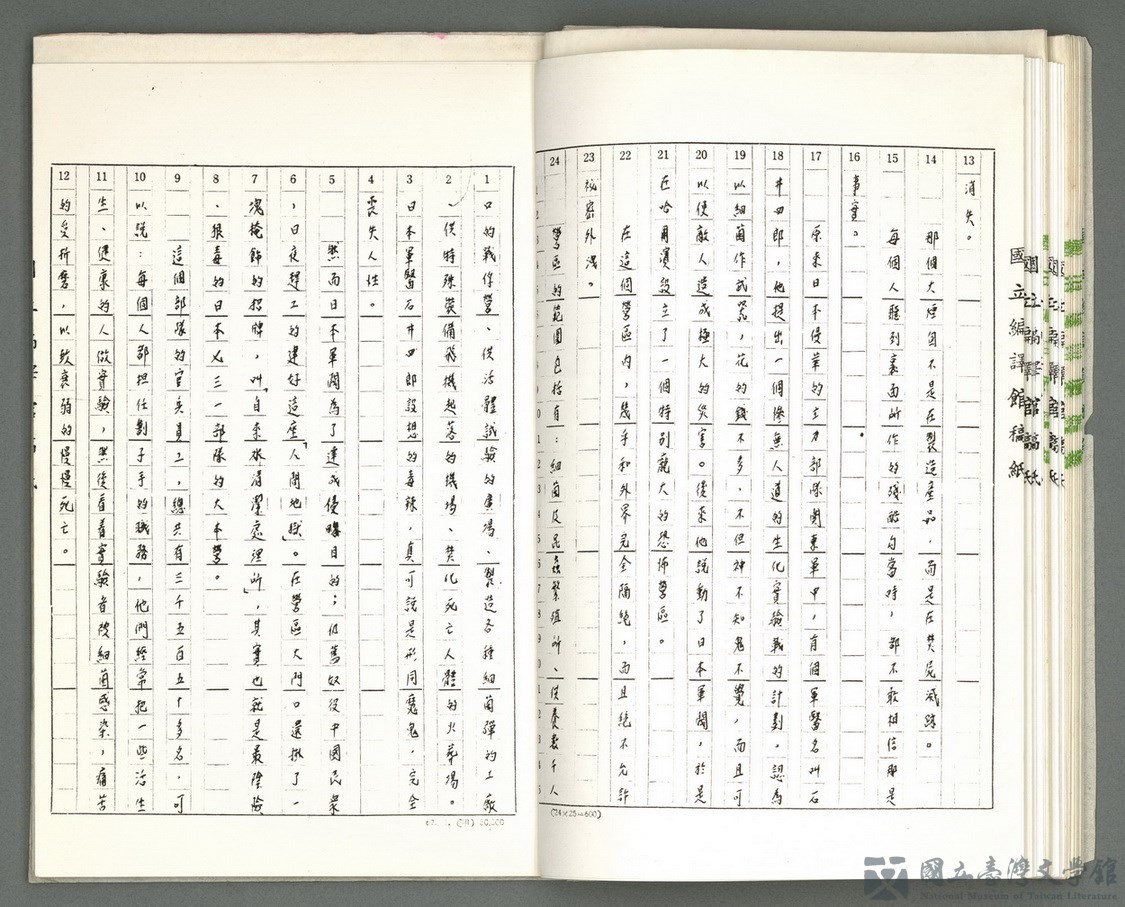 13
消失。
14
那個大煙囪不是在製造產品，而是在焚屍滅跡。
15
每個人聽到裏面所作的殘酷勾當時，都不敢相信那是
16
事實。
17
原來日本侵華的主力部隊關東軍中，有個軍醫名叫石
18
井四郎，他提出一個慘無人道的生化實驗戰的計劃，認為
19
以細菌作武器，花的錢不多，不但神不知鬼不覺，而且可
20
以使敵人造成極大的災害。後來他說動了日本軍閥，於是
21
在哈爾濱設立了一個特別龐大的恐怖營區。
22
在這個營區內，幾乎和外界完全隔絕，而且絕不允許
23
祕密外洩。
24
營區的範圍包括有：細菌及昆蟲繁殖所、供養數千人
(24×25=600)
國立編譯館稿紙
1
口的戰俘營、供活體試驗的廣場、製造各種細菌彈的工廠
2
、供特殊裝備飛機起落的機場、焚化死亡人體的火葬場。
3
日本軍醫石井四郎設想的毒辣，真可說是形同魔鬼，完全
4
喪失人性。
5
然而日本軍閥為了達成侵略目的；仍舊奴役中國民衆
6
，日夜趕工的建好這座「人間地獄」。在營區大門口還掛了一
7
塊掩飾的招牌，叫「自來水清潔處理所」，其實也就是最陰險
8
、狠毒的日本七三一部隊的大本營。
9
這個部隊的官兵員工，總共有三千五百五十多名，可
10
以說：每個人都担任劊子手的職務，他們經常把一些活生
11
生、健康的人做實驗，然後看着實驗者被細菌感染，痛苦
12
的受折磨，以致衰弱的慢慢死亡。
國立臺灣文學館
National Museum of Taiwan Literature